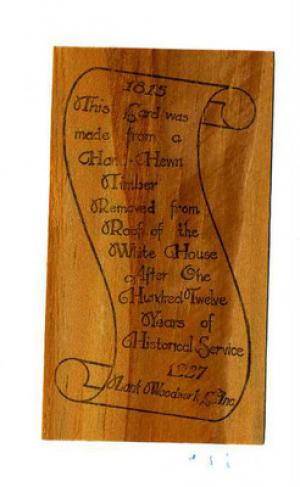 1815
This Card was
made from a
Hand-Hewn
Timber
Removed from
Roof of the
White House
After One
Hundred Twelve
Years of
Historical Service
1927
Woodwork Co. Inc.